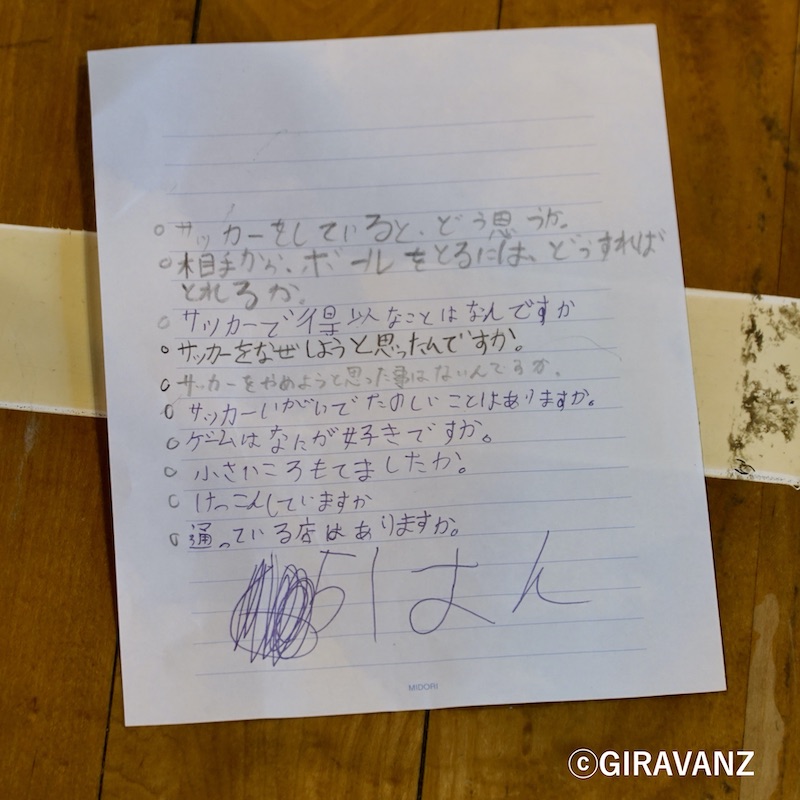 ○サッカーをしていると、どう思うか。
○相手から、ボールをとるには、どうすれば
とれるか。
○サッカーで得以なことはなんですか
○サッカーをなぜしようと思ったんですか。
○サッカーをやめようと思った事はないんですか。
○サッカーいがいでたのしいことはありますか。
○ゲームはなにが好きですか。
○小さいころもてましたか。
○けっこんしていますか
○通っている店はありますか。
51はん
MIDORI
©GIRAVANZ